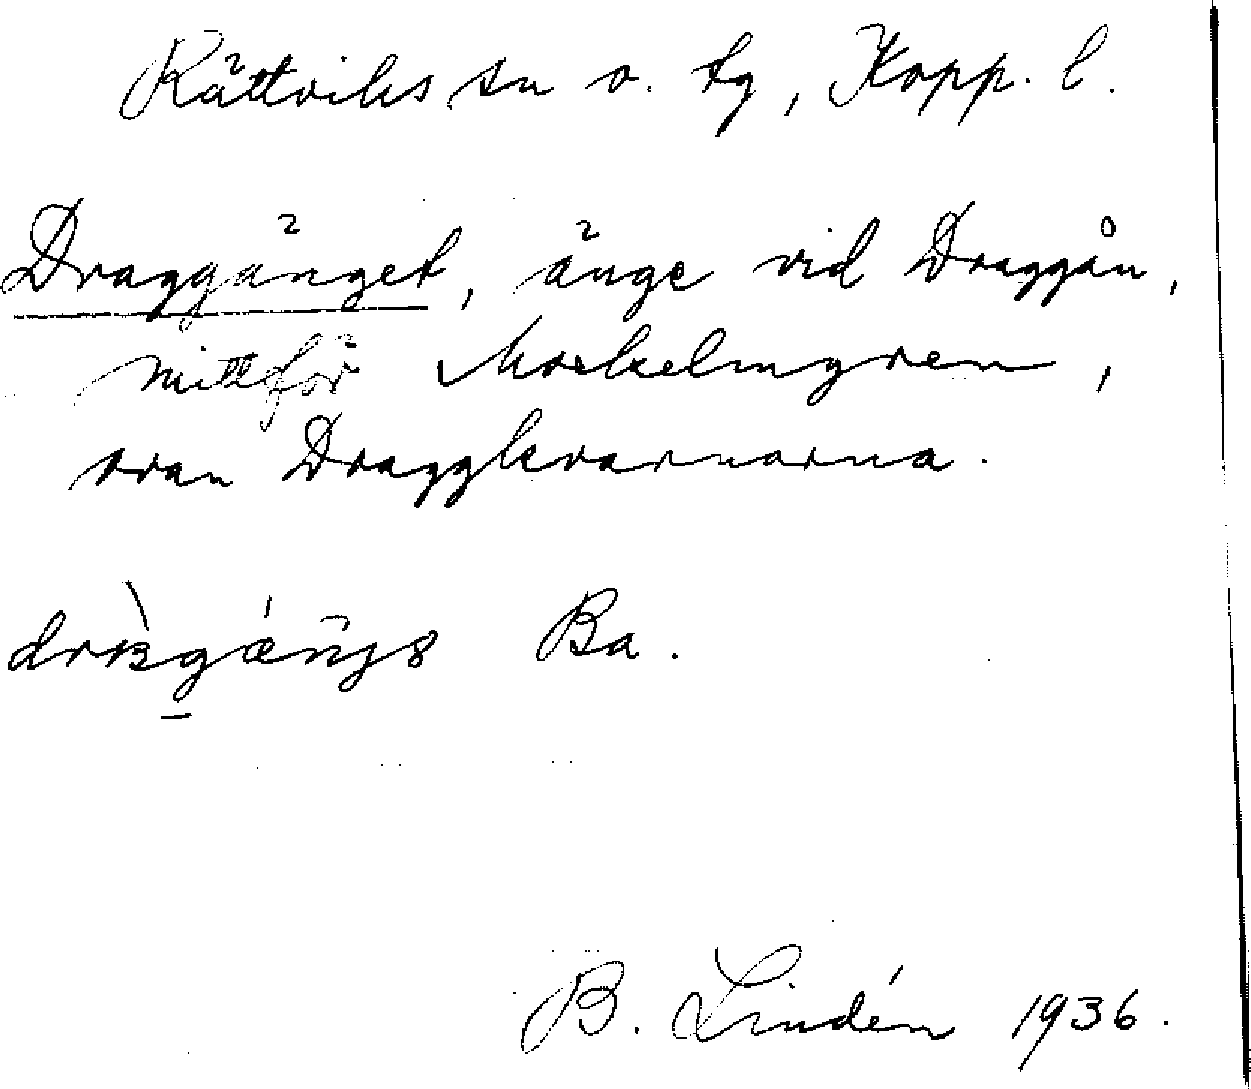 Rättviks sn o. tg, Kopp. l.
Draggänget, änge vid Draggån,
mittför Moskelmyren,
ovan Draggkvarnarna.
Ba.
B. Lindén 1936.